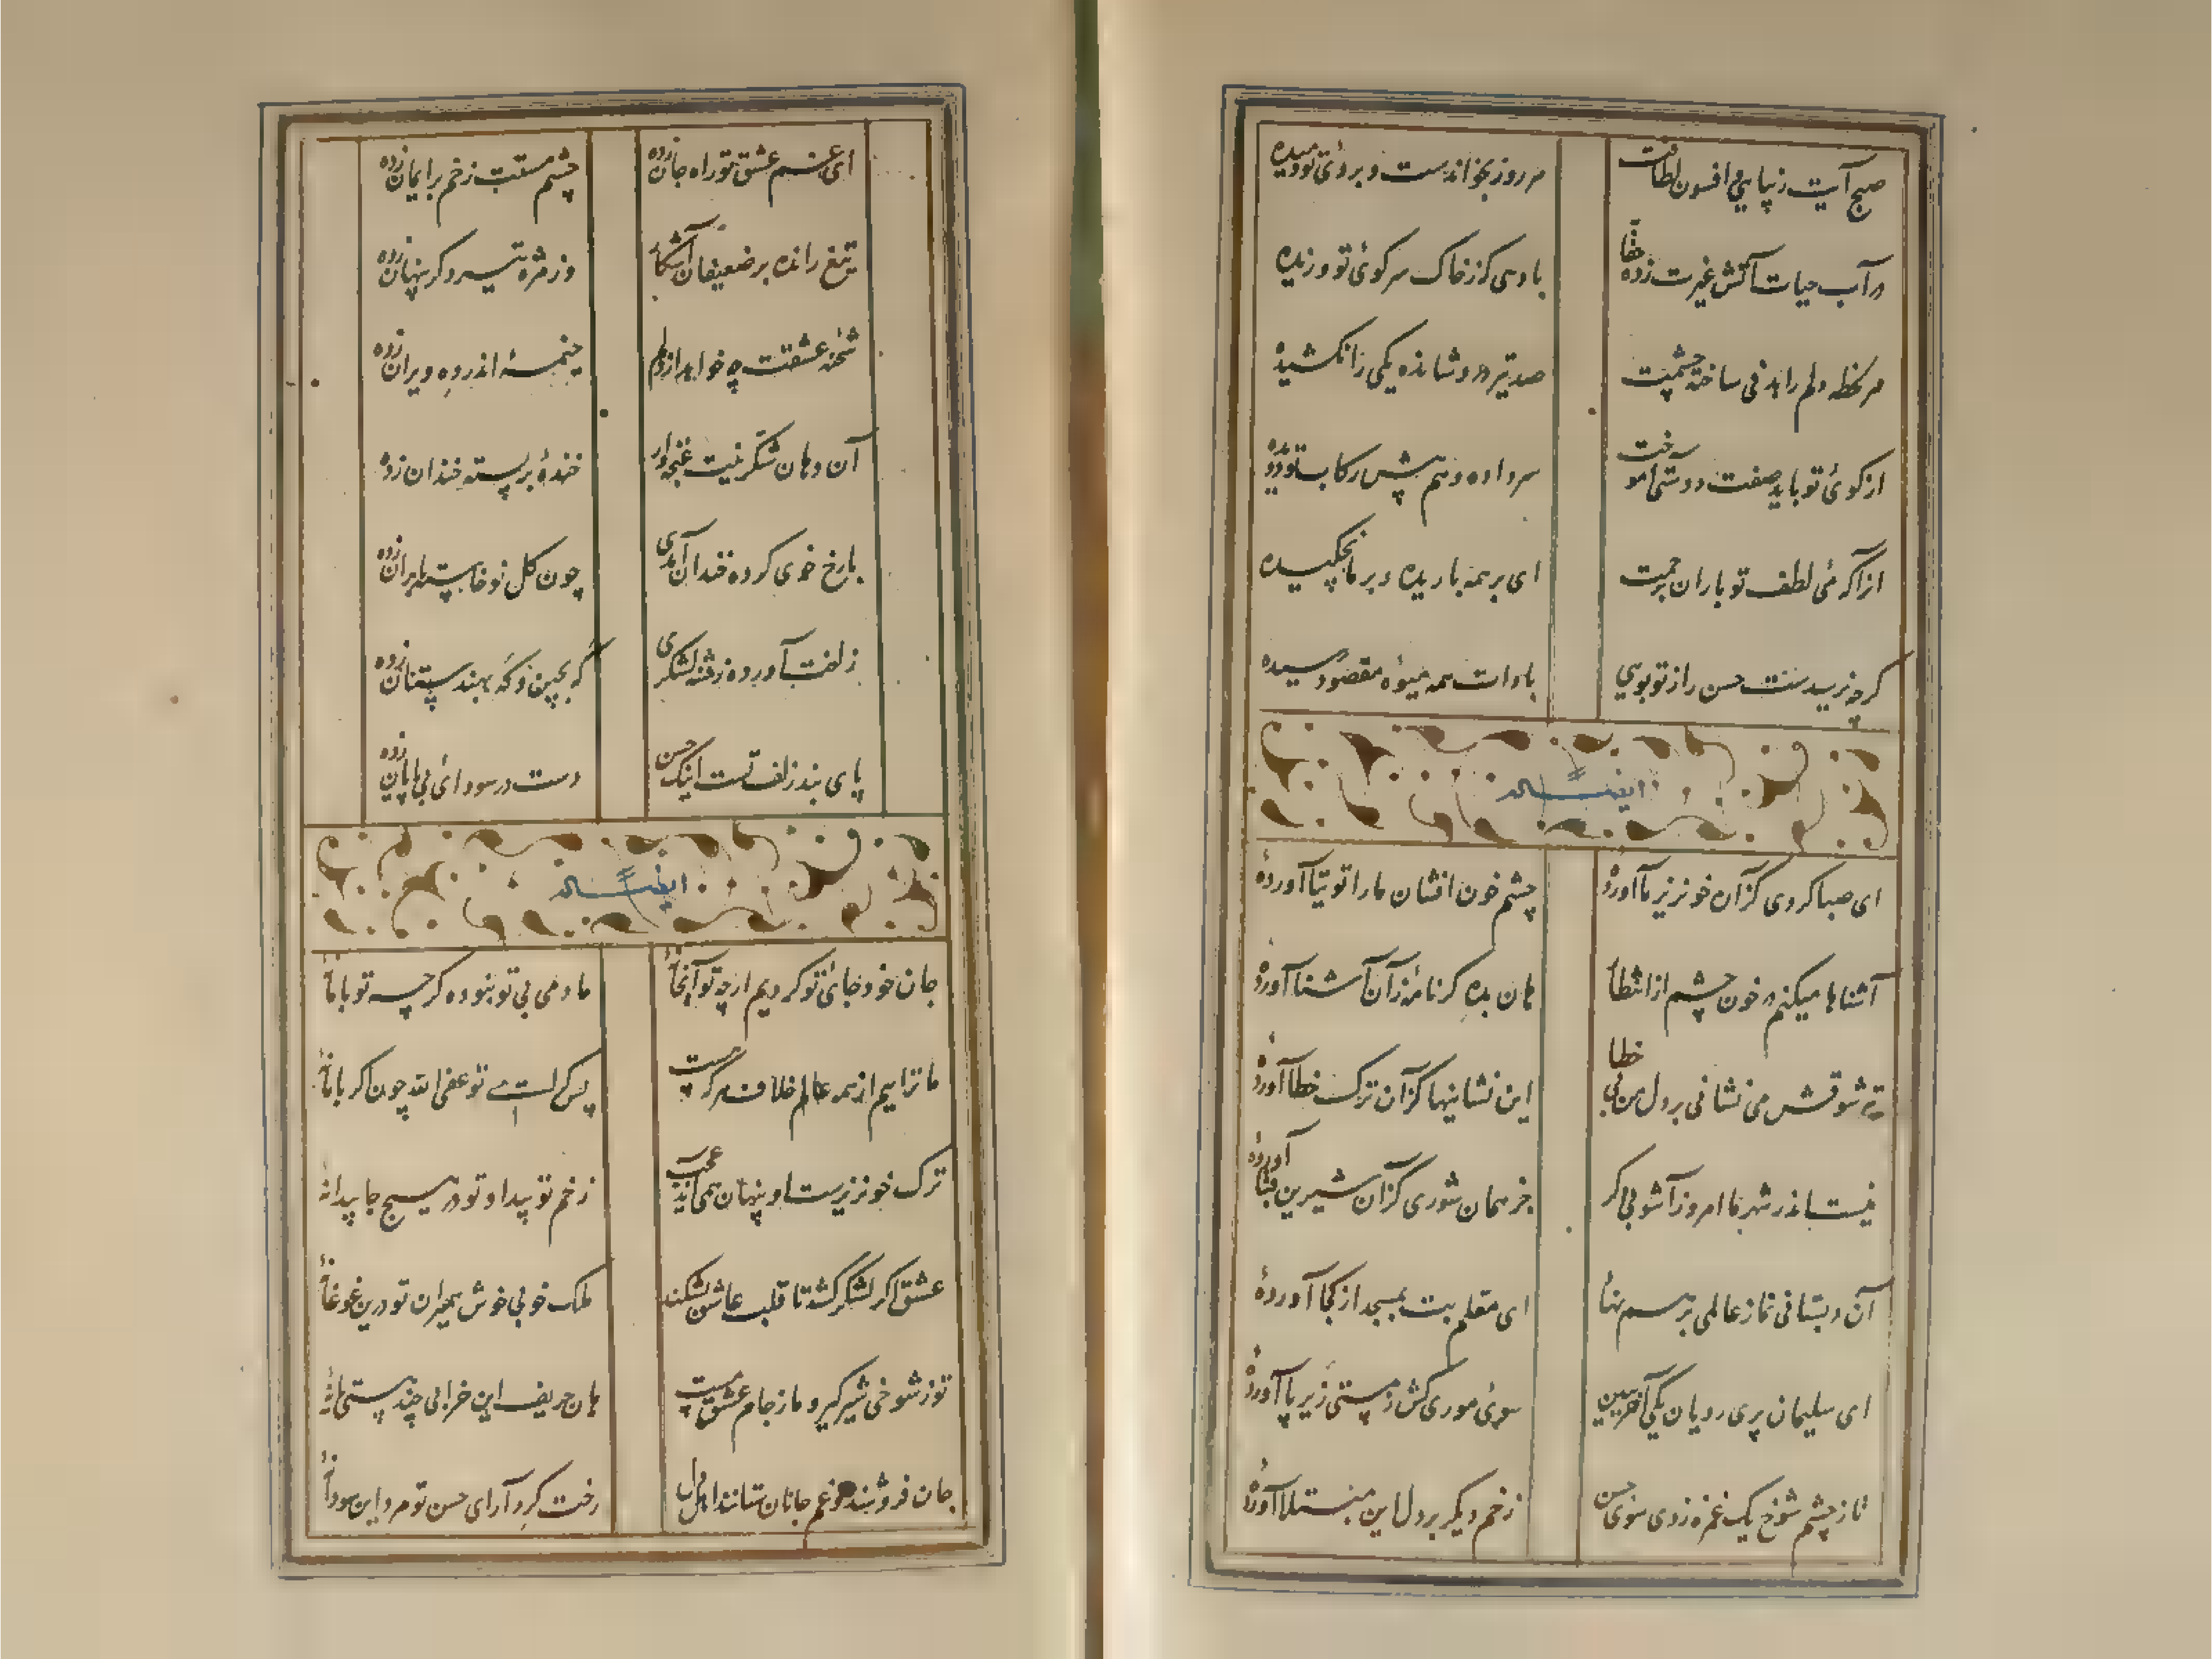 صبح آیت زیبایی و افسون لطافت
هر روز بخواندست و بروی تو دمیده
در آب حیات آتش غیرت زده حقا
بادی کز خاک سر کوی تو وزیده
هر لحظه دلم را هدفی ساخته چشمت
صد تیر درو شانده یکی را نکشیده
از کوی تو باید صفت دوستی آموخت
سر داده و هم پیش رکاب تو دویده
از ابر لطف تو باران رحمت
ای بر همه باریده و بر ما نچکیده
گرچه نرسیدست حسن را ز تو بویی
بادات همه میوه مقصود رسیده
ایضاله
ای صبا گردی کز آن خونریز ما آورده
چشم خون افشان ما را توتیا آورده
آشناها میکنم در خون چشم از انتظار
هان بده گر نامه زان آشنا آورده
تیر شوقش می نشانی بر دل من بی خطا
این نشانیها کز آن ترک خطا آورده
نیست اندر شهر ما امروز آشوبی دگر
جز همان شوری کزان شیرین لقا آورده
آن دبستانی نماز عالمی بر هم نهاد
ای معلم بت بمسجد از کجا آورده
ای سلیمان پری رویان یکی آخر ببین
سوی موری کش ز مستی زیر پا آورده
تا ز چشم شوخ یک غمزه زدی سوی حسن
زخم دیگر بر دل این مبتلا آورده
ای غم عشق تو راه جان زده
چشم مستت زخم بر ایمان زده
تیغ رانده بر ضعیفان آشکار
وز مژه تیر دگر پنهان زده
شحنه عشقت چه خواهد از دلم
خیمه اندر ده ویران زده
آن دهان شکرینت غنچه وار
خنده بر پسته خندان زده
با رخ خوی کرده خندان آمدی
چون گل نو خاسته باران زده
زلفت آورده ز فتنه لشکری
گه بچین و گه بهندستان زده
پای بند زلف تست اینک حسن
دست در سودای بی پایان زده
ایضاله
جان خود جای تو کردیم ارچه تو آنجا نه
ما دمی بی تو نبوده گرچه تو با ما نه
ما ترا ییم از همه عالم خلاف هرکه هست
پس کراستی تو عفی الله چون اگر با ما نه
ترک خونریزست او پنهان همی آید عجب
زخم تو پیدا و تو در هیچ جا پیدا نه
عشق اگر لشکر کشد تا قلب عاشق بشکند
ملک خوبی خوش بمیران تو درین غوغا نه
تو ز شوخی شیرگیر و ما ز جام عشق مست
هان حریف این خرابی چند هستی یا نه
جان فروشند و غم جانان ستانند اهل دل
رخت گرد آرای حسن تو مرد این سودا نه